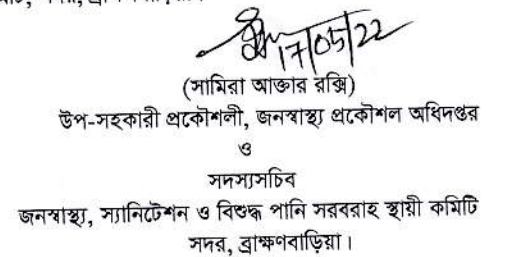 17/05/22
(সামিরা আক্তার রক্সি)
উপ-সহকারী প্রকৌশলী, জনস্বাস্থ্য প্রকৌশল অধিদপ্তর
ও
সদস্যসচিব
জনস্বাস্থ্য, স্যানিটেশন ও বিশুদ্ধ পানি সরবরাহ স্থায়ী কমিটি
সদর, ব্রাহ্মণবাড়িয়া।